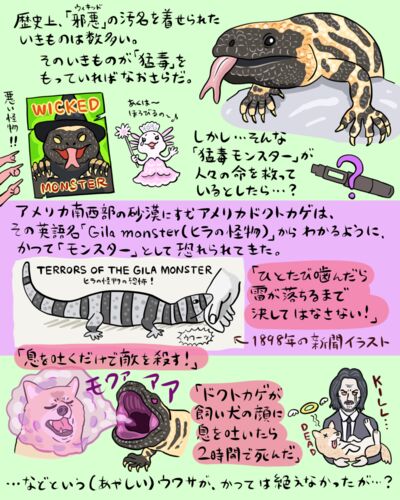 歴史上、「邪悪」の汚名を着せられた
ウィキッド
いきものは数多い。
そのいきものが「猛毒」を
もっていればなおさらだ。
悪い怪物!!
WICKED
MONSTER
あくは〜
ほろびるの〜♪
しかし…そんな
「猛毒モンスター」が
人々の命を救って
いるとしたら…?
?
アメリカ南西部の砂漠にすむアメリカドクトカゲは、
その英語名「Gila monster(ヒラの怪物)」からわかるように、
かつて「モンスター」として恐れられてきた。
TERRORS OF THE GILA MONSTER
ヒラの怪物の恐怖!
「ひとたび噛んだら
雷が落ちるまで
決してはなさない!」
← 1898年の新聞イラスト
「息を吐くだけで敵を殺す!」
モクァァア
「ドクトカゲが
飼い犬の顔に
息を吐いたら
2時間で死んだ」
KILL…
DEAD
…などという(あやしい)ウワサが、かつては絶えなかったが…?